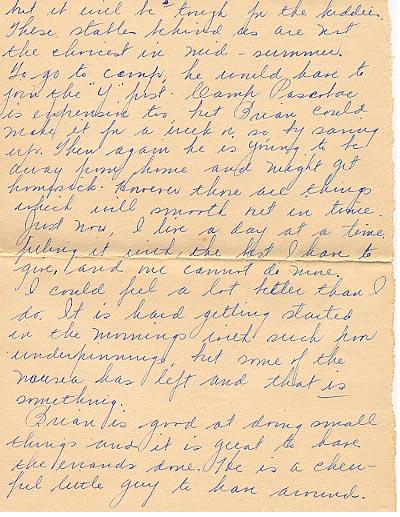 but it will be tough for the kiddies.
These stables behind us are not
the choicest in mid-summer.
To go to camp, he would have to
join the "Y" first. Camp Pascobac
is expensive too, but Brian could
make it for a week or so by saving
up. Then again he is young to be
away from home and might get
homesick. However these are things
which will smooth out in time.
Just now, I live a day at a time
filling it with the best I have to
give, and one cannot do more.
I could feel a lot better than I
do. It is hard getting started
in the mornings with such poor
underpinnings, but some of the
nausea has left and that is
something.
Brian is good at doing small
things and it is great to have
the errands done. He is a cheer-
ful little guy to have around.